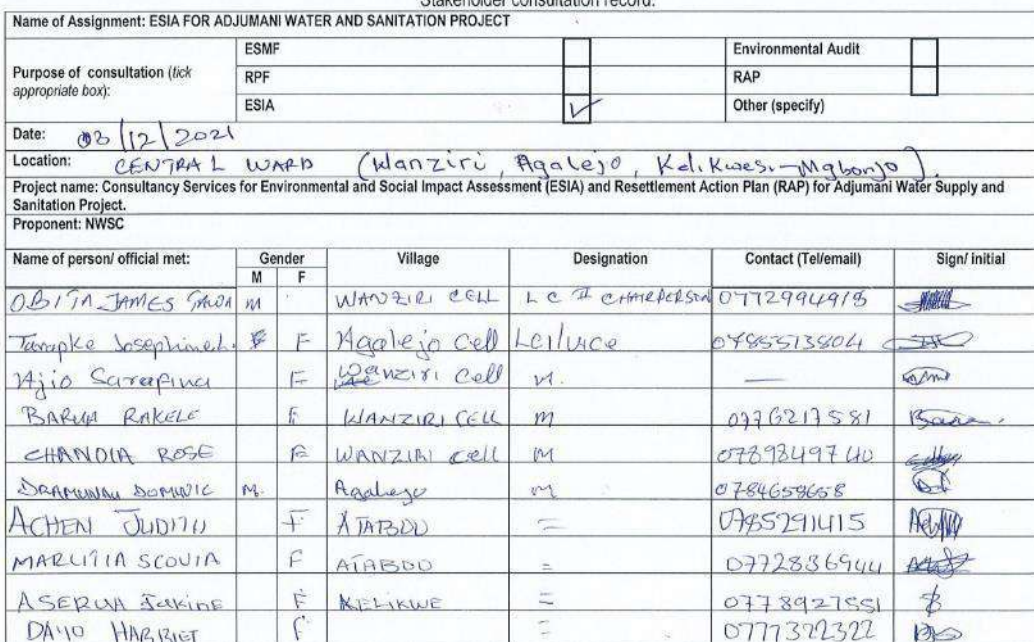 Stakeholder consultation record.
Name of Assignment: ESIA FOR ADJUMANI WATER AND SANITATION PROJECT
Purpose of consultation (tick appropriate box):
ESMF Environmental Audit
RPF RAP
ESIA ✓ Other (specify)
Date: 03/12/2021
Location: CENTRAL WARD (Wanziri, Agalejo, Kelikwesi-Mgbonjo).
Project name: Consultancy Services for Environmental and Social Impact Assessment (ESIA) and Resettlement Action Plan (RAP) for Adjumani Water Supply and
Sanitation Project.
Proponent: NWSC
Name of person/ official met: Gender Village Designation Contact (Tel/email) Sign/ initial
M F
OBITA JAMES M WANZIRI CELL L C II CHAIRPERSON 0772994915
Josephine F Agalejo Cell LC1/vice 0785513804
Ajio Sarafina F Wanziri Cell M. —
BARUA RAKELE F WANZIRI CELL M 0776217581
CHANDIA ROSE F WANZIRI cell M 0789849740
DOMINIC M. Agalejo M 0784659658
ACHEN JUDITH F ATABOO = 0785291415
SCOVIA F ATABOO = 0772836944
ASERUA F KELIKWE = 0778927551
HARRIET F = 0777322322